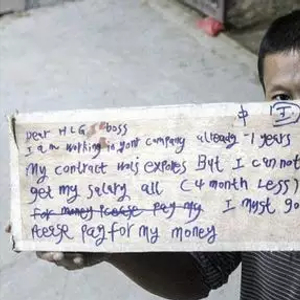 Dear HLG boss
I am working in your company already -1 years
My contract was expores But I can not
get my salary all (4 month Less)
for money Pcease pay my I must go
Pcease pay for my money